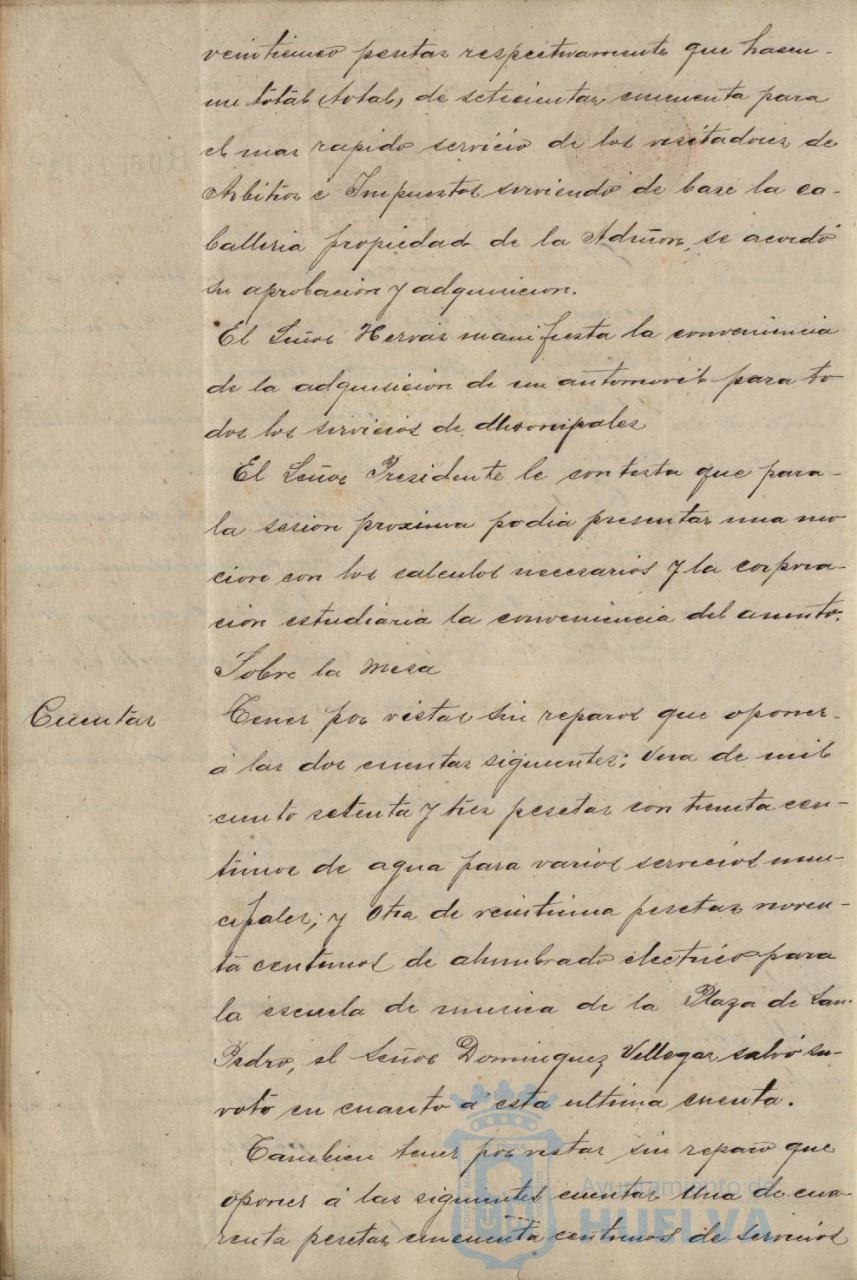 veinticinco pesetas respectivamente que hacen-
un total (total) de setecientas cincuenta para
el mas rapido servicio de los visitadores de
Arbitrios é Impuestos sirviendo de base la ca-
balleria propiedad de la se acordó
su aprobacion y adquisicion.
El Señor Hervás manifiesta la conveniencia
de la adquisicion de un automovil para to
dos los servicios de Municipales
El Señor Presidente le contesta que para-
la sesion proxima podia presentar una mo
cion con los calculos necesarios y la corpora-
cion estudiaria la conveniencia del asunto.
Sobre la mesa
Cuentas
Tener por vistas sin reparos que oponer-
á las dos cuentas siguientes: Una de mil
ciento setenta y tres pesetas con treinta cen-
timos de agua para varios servicios muni-
cipales; y Otra de veintiuna pesetas noven-
ta centimos de alumbrado electrico para
la escuela de musica de la Plaza de San
Pedro, el Señor Dominguez Villegas salvó su-
voto en cuanto á esta ultima cuenta.
Tambien tener por vistas sin reparo que
oponer á las siguientes cuentas Una de cua
renta pesetas cincuenta centimos de servicios
Ayuntamiento de
HUELVA